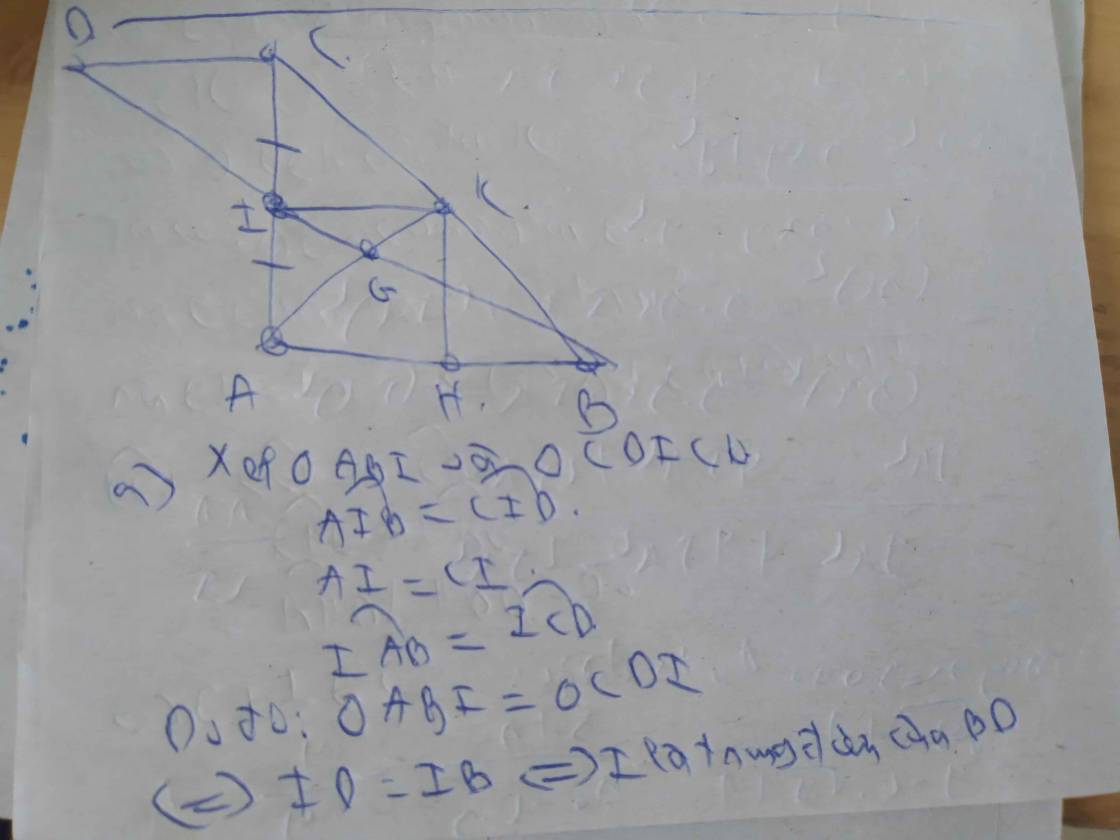 D C
I K
G
A H. B
a) Xét Δ ABI và Δ CDI có
AIB = CID.
AI = CI.
IAB = ICD
Do đó: Δ ABI = Δ CDI
(=) ID = IB (=) I là trung điểm của BD